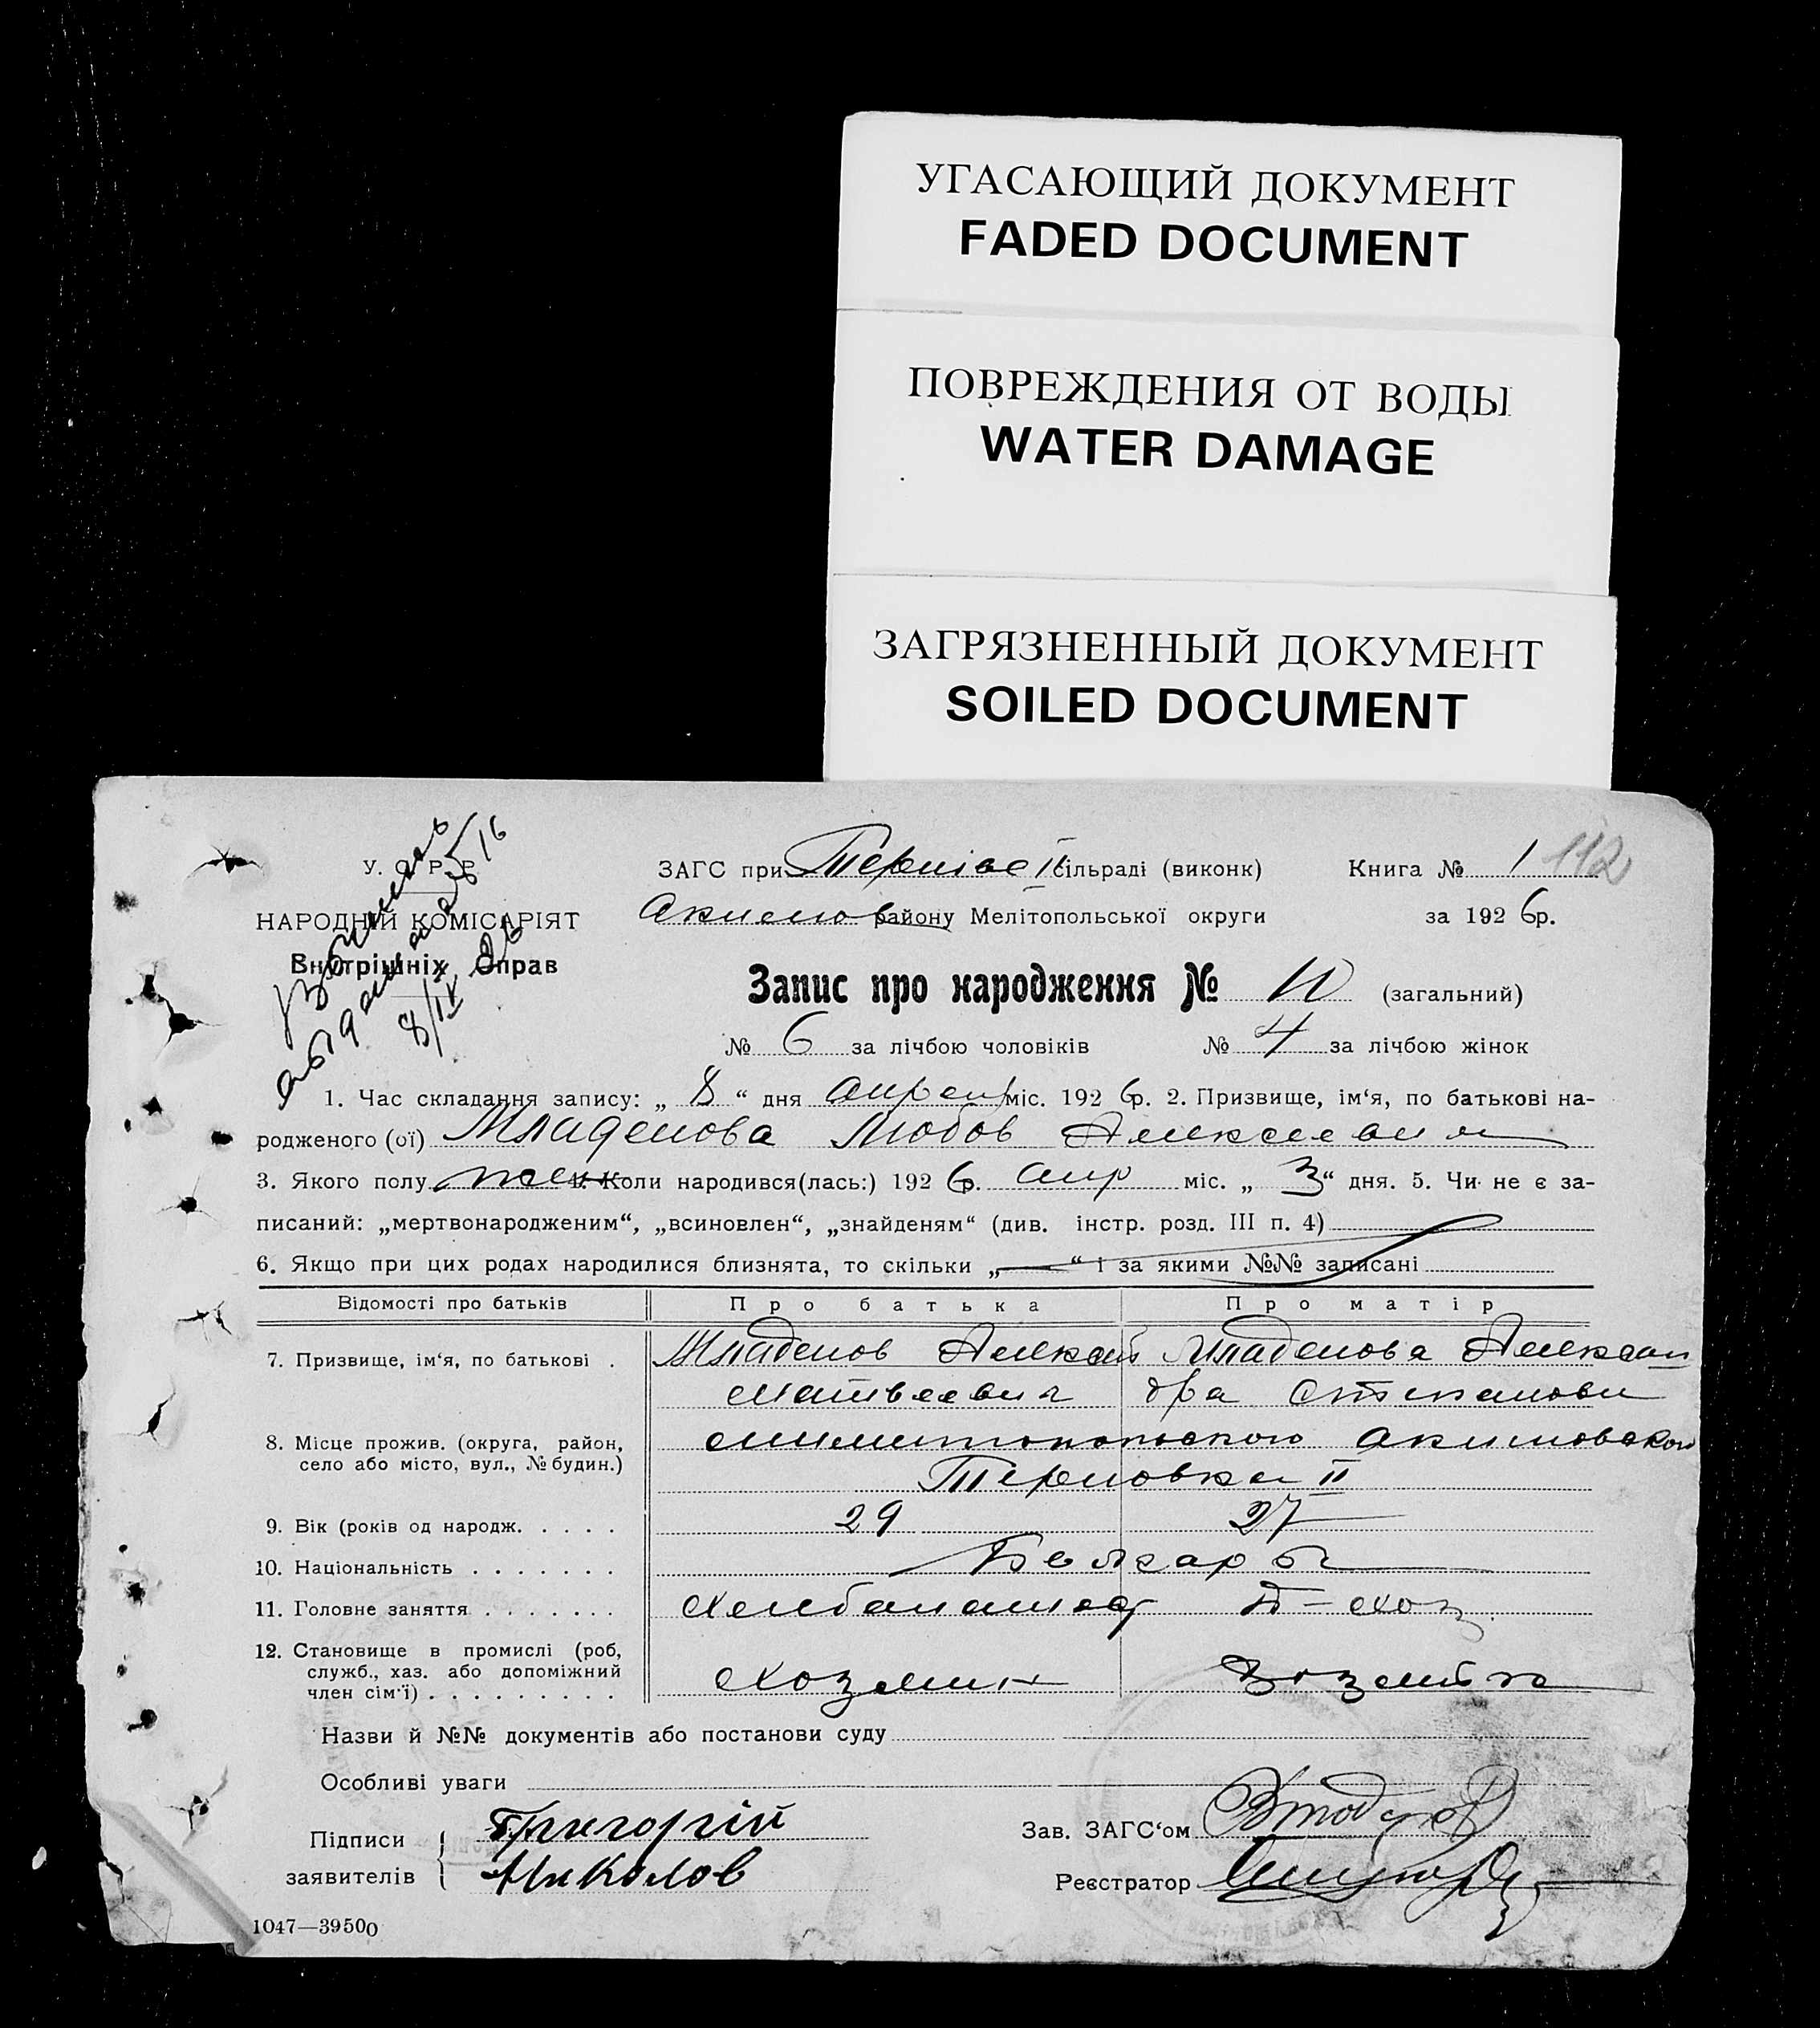 УГАСАЮЩИЙ ДОКУМЕНТ
FADED DOCUMENT
ПОВРЕЖДЕНИЯ ОТ ВОДЫ
WATER DAMAGE
ЗАГРЯЗНЕННЫЙ ДОКУМЕНТ
SOILED DOCUMENT
У. С. Р. Р.
НАРОДНІЙ КОМІСАРІЯТ
Внутрішніх Справ
8/IV 26
ЗАГС при Тернівс II сільраді (виконк) Книга № 1 112
Акимов району Мелітопольської округи за 1926р.
Запис про народження № (загальний)
№ 6 за лічбою чоловіків № 4 за лічбою жінок
1. Час складання запису: „ 8 “ дня апрель міс. 1926р. 2. Призвище, ім‘я, по батькові на-
родженого (ої) Младенова Любов Алексеевна
3. Якого полу жен 4. Коли народився(лась:) 1926р. апр міс. „ 3 “ дня. 5. Чи не є за-
писаний: „мертвонародженим“, „всиновлен“, „знайденям“ (див. інстр. розд. III п. 4)
6. Якщо при цих родах народилися близнята, то скільки „—“ і за якими №№ записані
Відомості про батьків Про батька Про матір
7. Призвище, ім‘я, по батькові . Младенов Алексей Младенова Алексан
Матвеевич дра Степанови
8. Місце прожив. (округа, район, село або місто, вул., № будин.) Мелитопольского Акимовского
Терновка II
9. Вік (років од народж. . . . . 29 27
10. Національність . . . . . . . Болгары
11. Головне заняття . . . . . . . Хлебопашест Д-хоз.
12. Становище в промислі (роб,
служб., хаз. або допоміжний
член сім‘ї) . . . . . . . . . Хозяин Хозяйка
Назви й №№ документів або постанови суду
Особливі уваги
Підписи Григорій Зав. ЗАГС‘ом
заявителів Николов Реєстратор
1047—39500